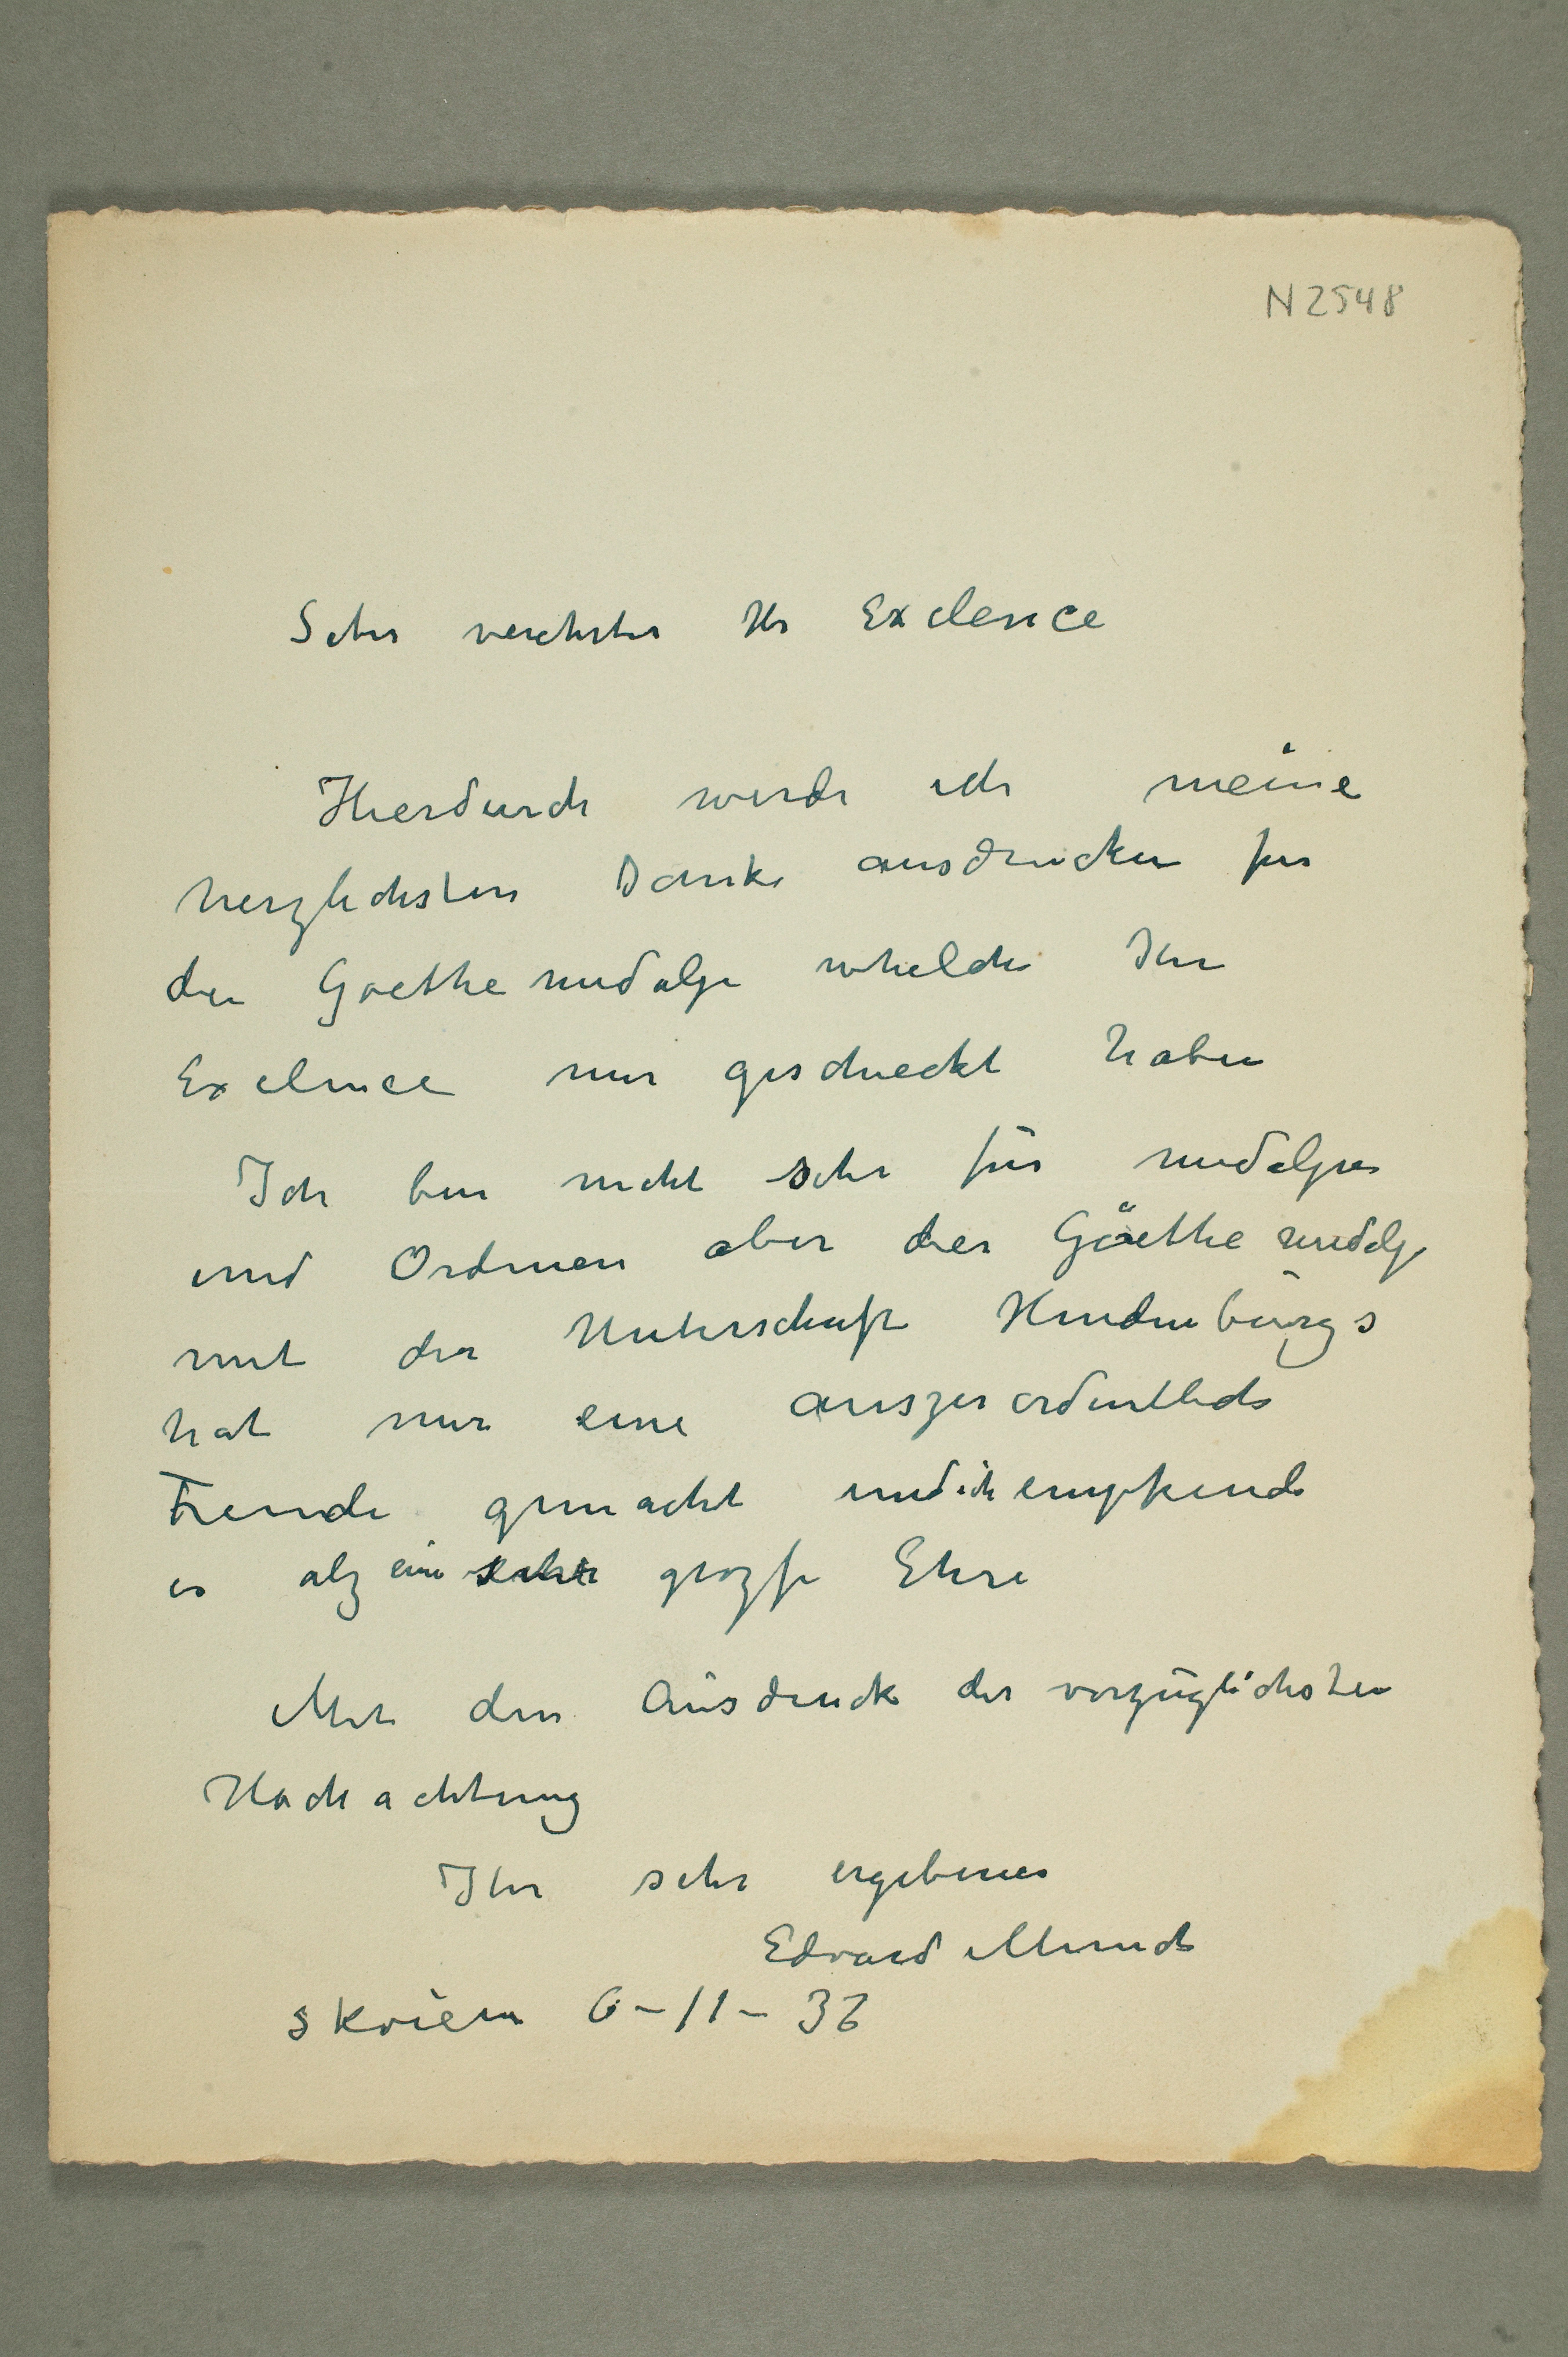 N 2548
Sehr verehrter Hr Exelence
Hierdurch werde ich meine
herzlichsten Danke ausdrucken fur
die Goethemedalje whelche Ihr
Exelence mir gescheckt haben
Ich bin nicht sehr für medaljer
und Ordenen aber der Göethe medalje
mit der Unterschuft Hindenburgs
hat mir eine auszerordentliche
Freude gemacht und ich empfinde
es alz eine sehr grozse Ehre
Mit den Ausdruck der vorzüglichsten
Hochachtung
Ihr sehr ergebener
Edvard Munch
Skøien 6-11-32